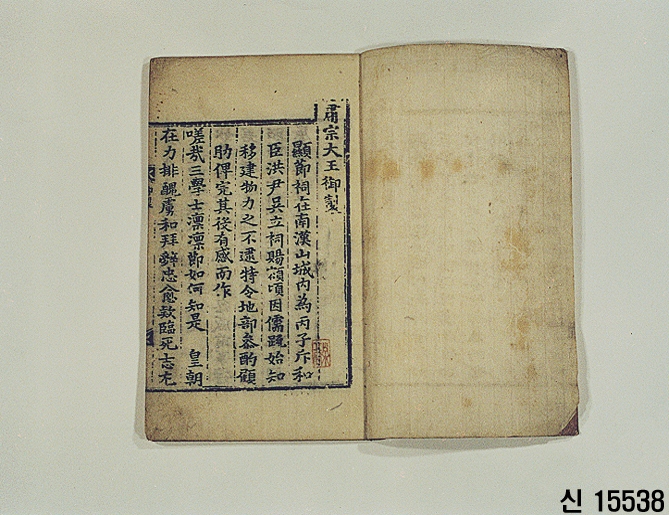 肅宗大王御製
顯節祠在南漢山城內爲丙子斥和
臣洪尹吳立祠賜額頃因儒疏始知
移建物力之不逮特令地部參酌顧
助俾完其後有感而作
嗟哉三學士凛凛節如何知是 皇朝
在力排醜虜和拜辭忠愈欵臨死志尤
신 15538